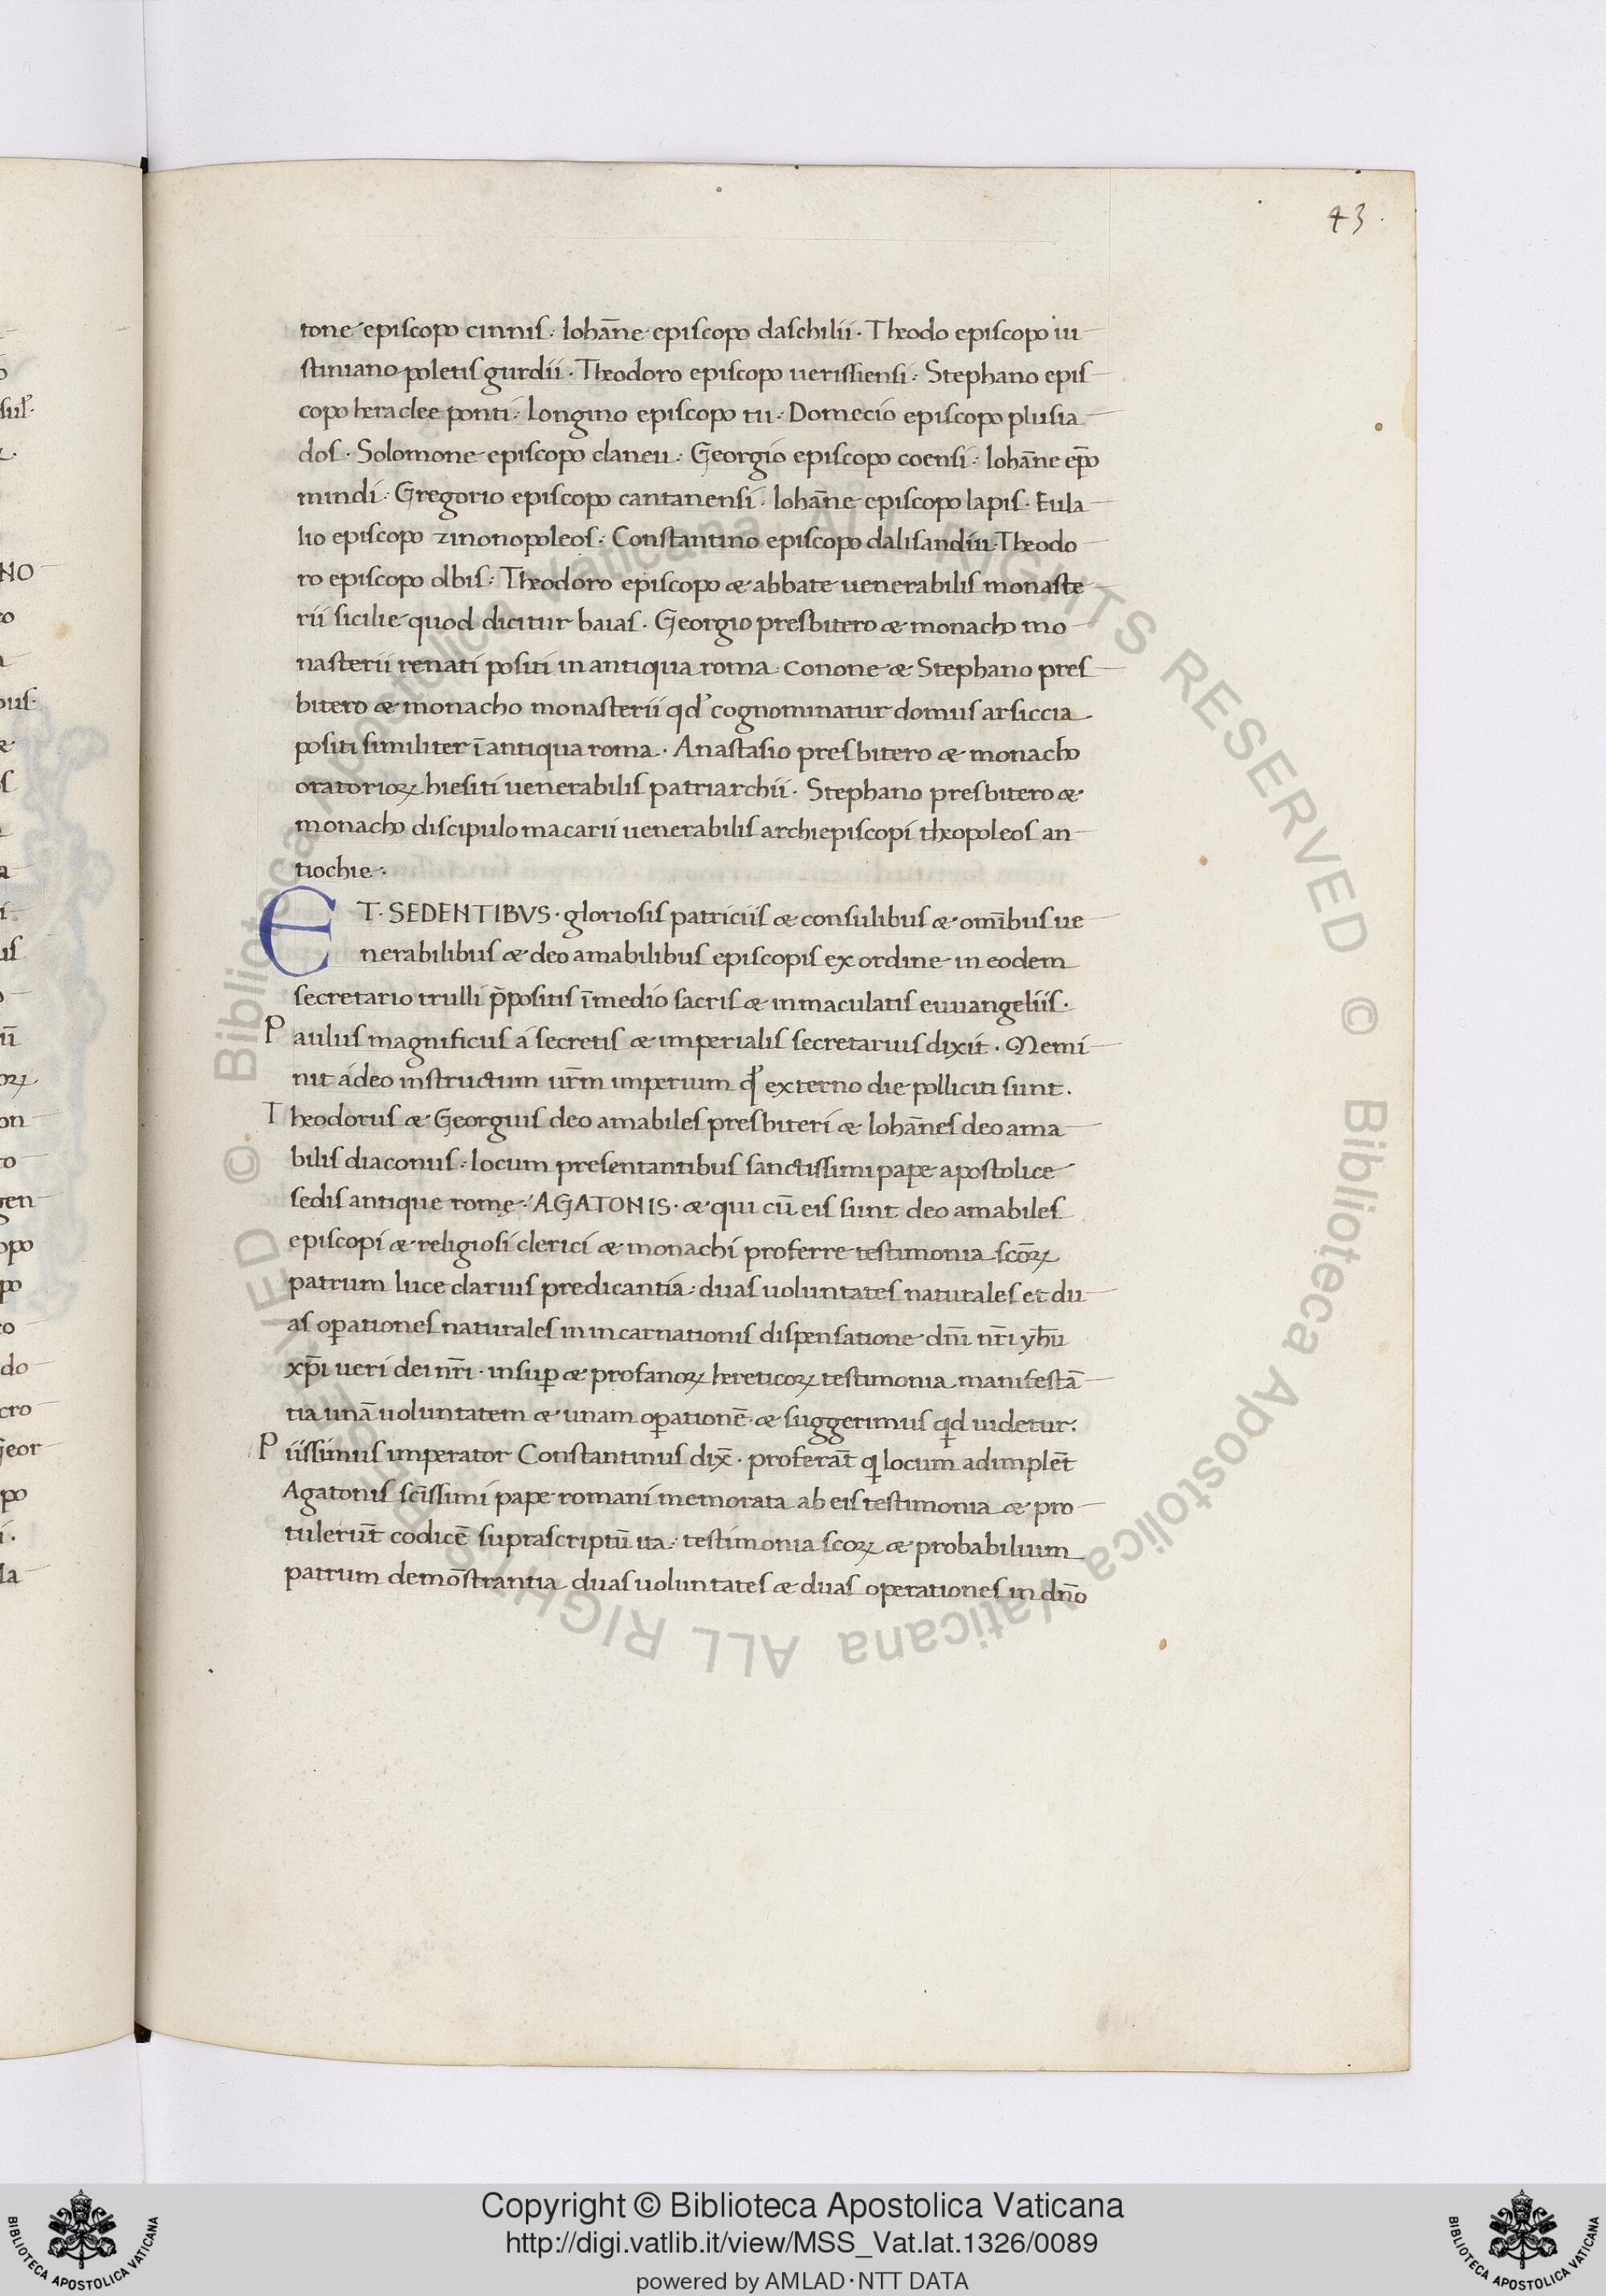 43.
tone episcopo cinnis: Iohāne episcopo daschilii. Theodo episcopo iu
stiniano poletis gurdii. Theodoro episcopo uerissiensi: Stephano epis
copo heraclee ponti: Longino episcopo tu: Domecio episcopo plusia
dos. Solomone episcopo claneu: Georgio episcopo coensi: Iohāne ep̄o
mindi: Gregorio episcopo cantanensi. Iohāne episcopo lapis. Eula
lio episcopo zinonopoleos: Constantino episcopo dalisandiu. Theodo
ro episcopo olbis: Theodoro episcopo & abbate uenerabilis monaste
rii sicilie quod dicitur baias. Georgio presbitero & monacho mo
nasterii renati positi in antiqua roma. Conone & Stephano pres
bitero & monacho monasterii qd' cognominatur domus arsiccia
positi similiter ī antiqua roma. Anastasio presbitero & monacho
oratorioꝝ hiesiti uenerabilis patriarchii. Stephano presbitero &
monacho discipulo macarii uenerabilis archiepiscopi theopoleos an
tiochie.
ET. SEDENTIBVS. gloriosis patriciis & consulibus & om̄ibus ue
nerabilibus & deo amabilibus episcopis ex ordine in eodem
secretario trulli p̄positis ī medio sacris & inmaculatis euuangeliis.
Paulus magnificus a secretis & imperialis secretarius dixit. Memi
nit adeo instructum ur̄m imperium qd' externo die polliciti sunt.
Theodorus & Georgius deo amabiles presbiteri & Iohānes deo ama
bilis diaconus: locum presentantibus sanctissimi pape apostolice
sedis antique romę. AGATONIS. & qui cū eis sunt deo amabiles
episcopi & religiosi clerici & monachi proferre testimonia scōꝝ
patrum luce clarius predicantia: duas uoluntates naturales et du
as oꝑationes naturales in incarnationis dispensatione dn̄i nr̄i yh̄u
xp̄i ueri dei nr̄i. insuꝑ & profanoꝝ hereticoꝝ testimonia manifestā
tia unā uoluntatem & unam oꝑationē & suggerimus qd uidetur:
Piissimus imperator Constantinus dix̄. proferāt q locum adimplēt
Agatonis sc̄issimi pape romani memorata ab eis testimonia & pro
tulerūt codicē suprascriptū ita: testimonia scoꝝ & probabilium
patrum demōstrantia duas uoluntates & duas operationes in dn̄o
Copyright © Biblioteca Apostolica Vaticana
http://digi.vatlib.it/view/MSS_Vat.lat.1326/0089
powered by AMLAD·NTT DATA